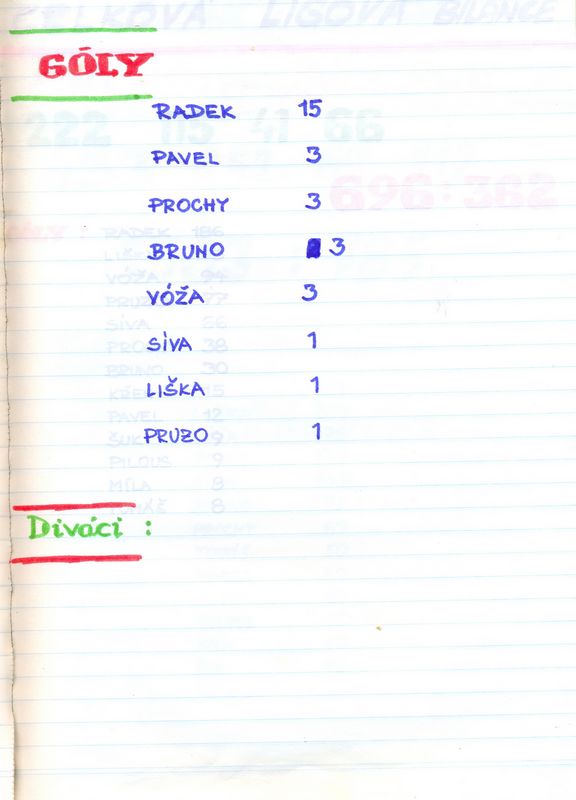 GÓLY
RADEK 15
PAVEL 3
PROCHY 3
BRUNO 3
VÓŽA 3
SÍVA 1
LIŠKA 1
PRUZO 1
Diváci :